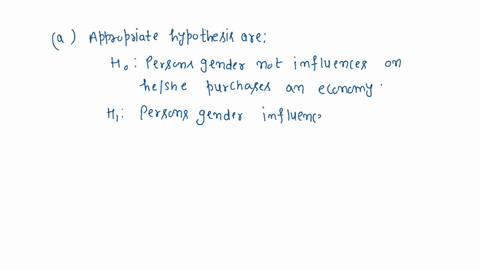 (a) Appropriate hypothesis are:
H₀: Persons gender not influences on
he/she purchases an economy.
H₁: Persons gender influenc